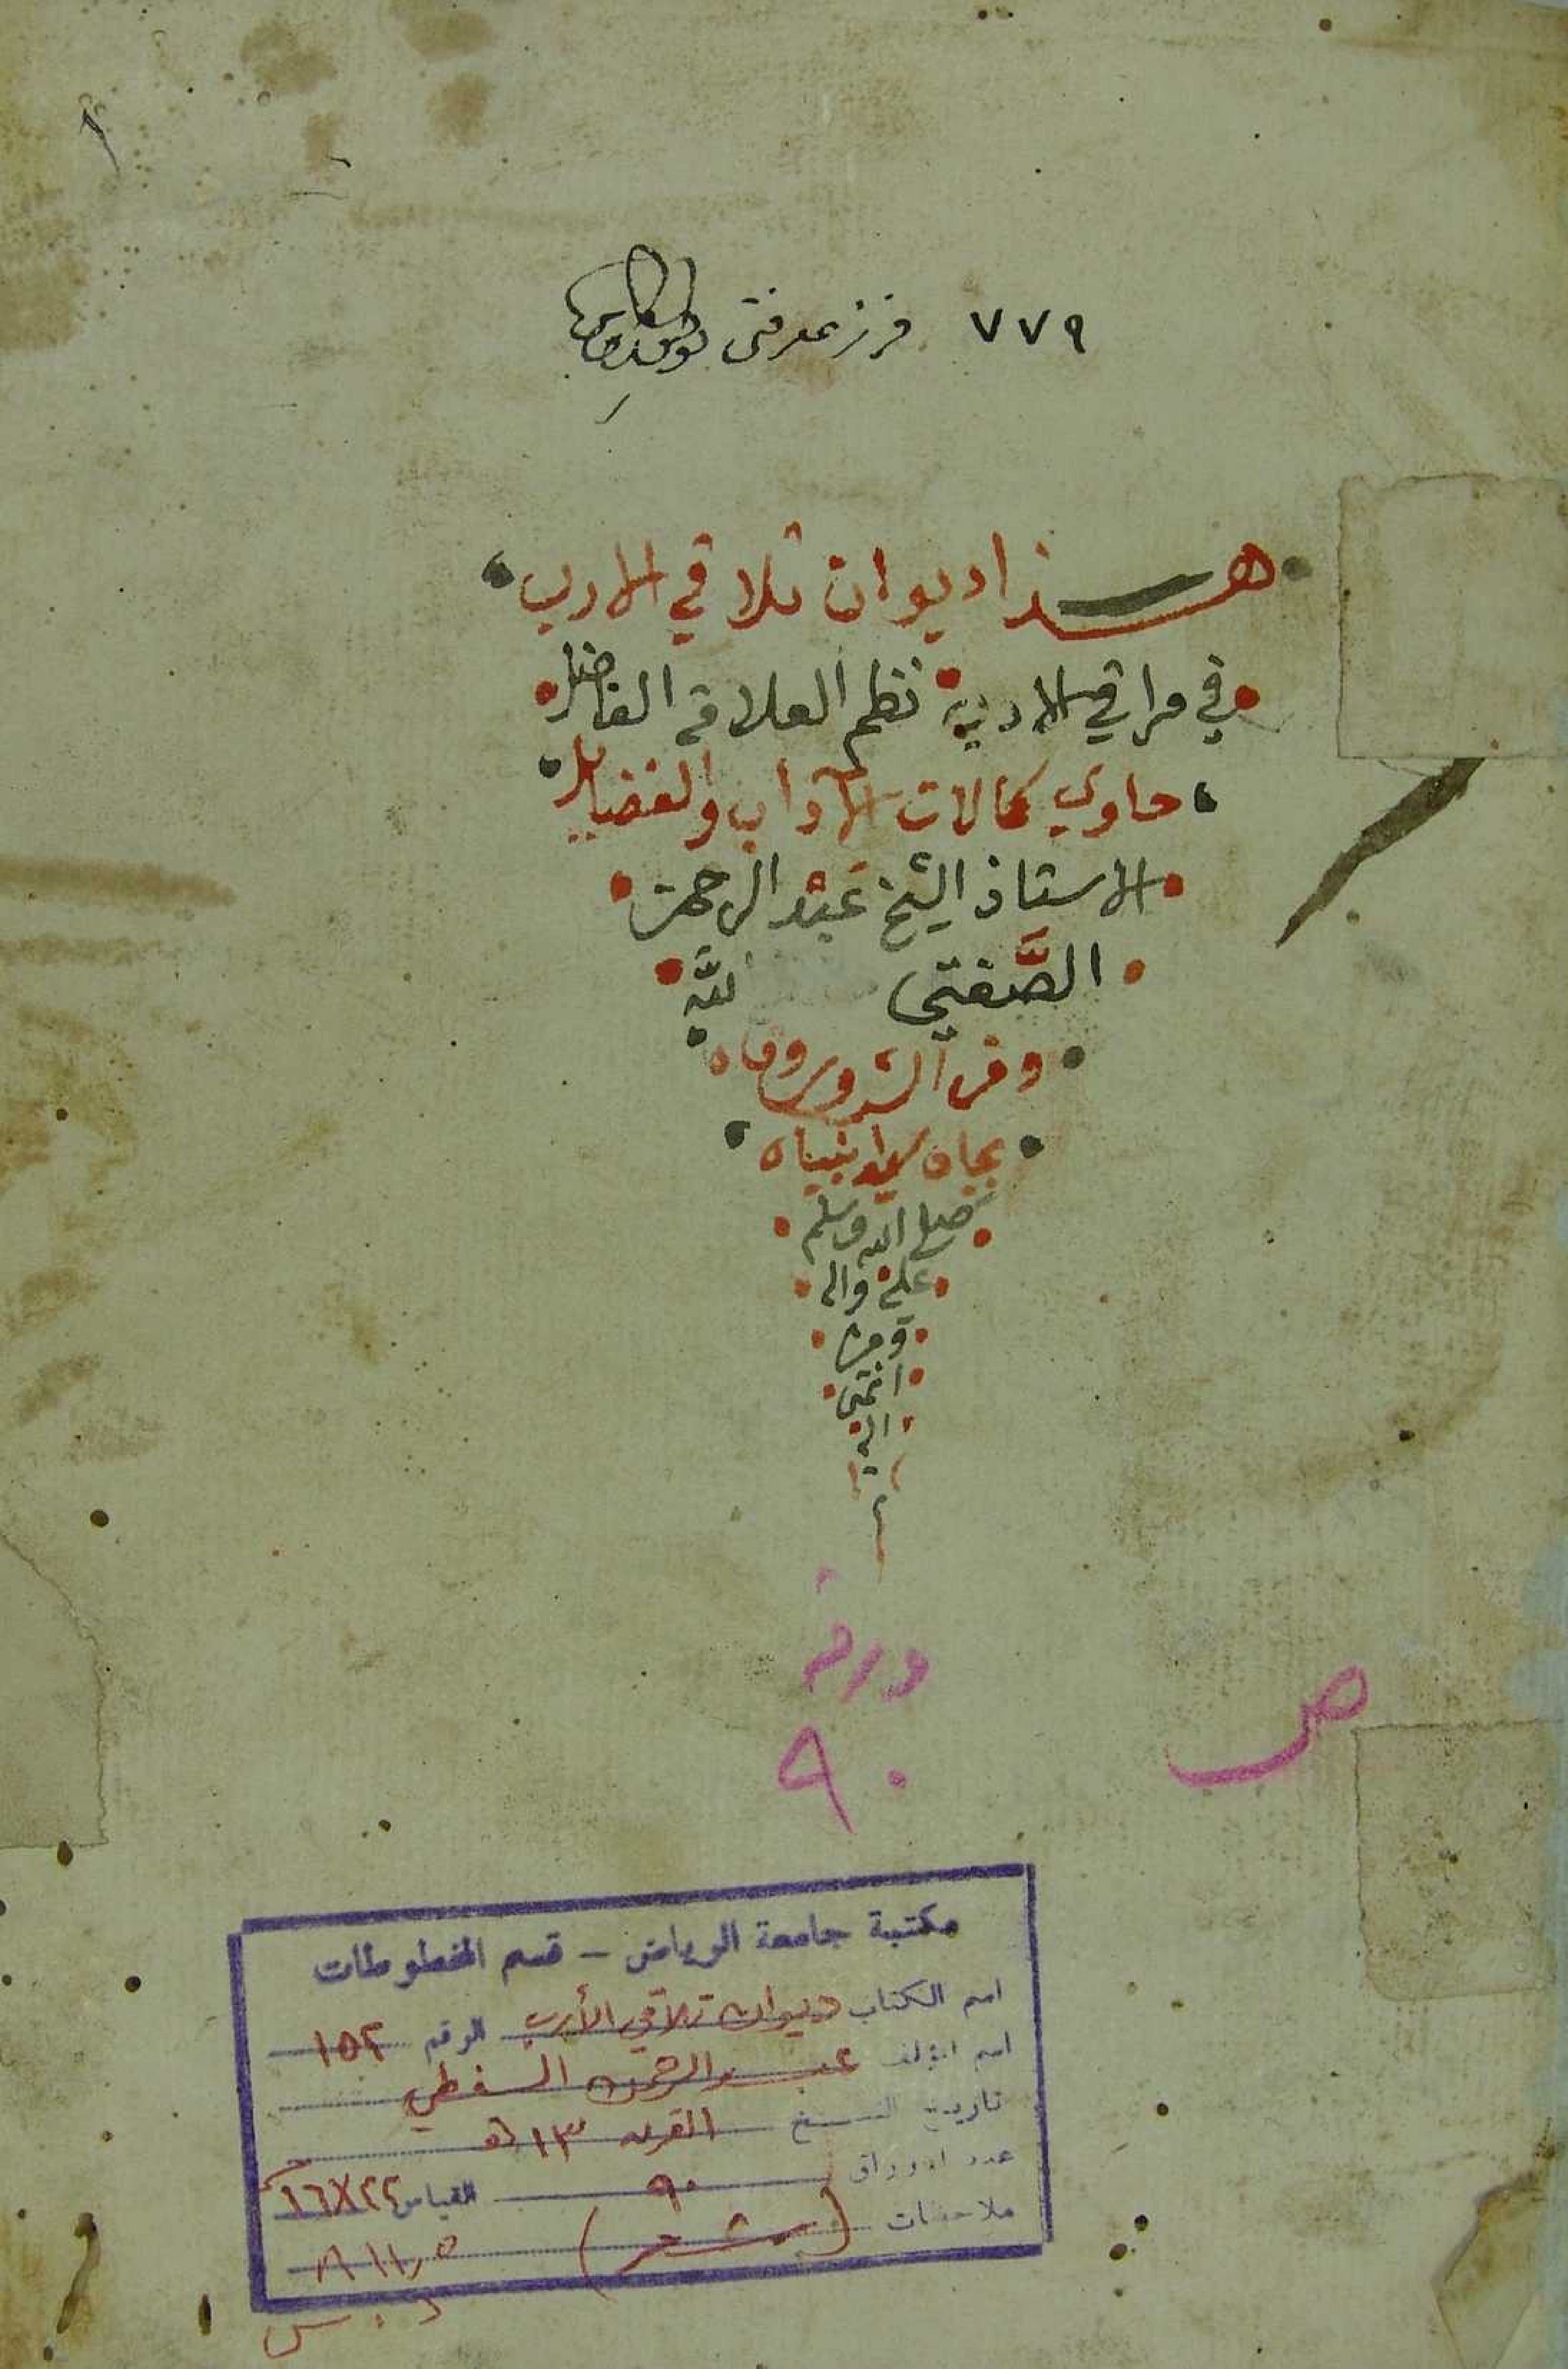 ١
٧٧٩
هذا ديوان تلاقي الارب
في مراقي الادب نظم العلامة الفاضل
حاوي كمالات الآداب والفضايل
الاستاذ الشيخ عبد الرحمن
الصفتي لله
وقاه
بجاه انبياه
صلى الله وسلم
عليه واله
ومن
انتمى
اليه
ورقة
٩٠
ص
مكتبة جامعة الرياض – قسم المخطوطات
اسم الكتاب ديوان تلاقي الأرب الرقم ١٥٢
اسم المؤلف عبد الرحمن السفطي
تاريخ النسخ القرن ١٣ هـ
عدد الاوراق ٩٠ القياس ٢٢×١٦
ملاحظات (شعر) ٨١١٫٥
د . س